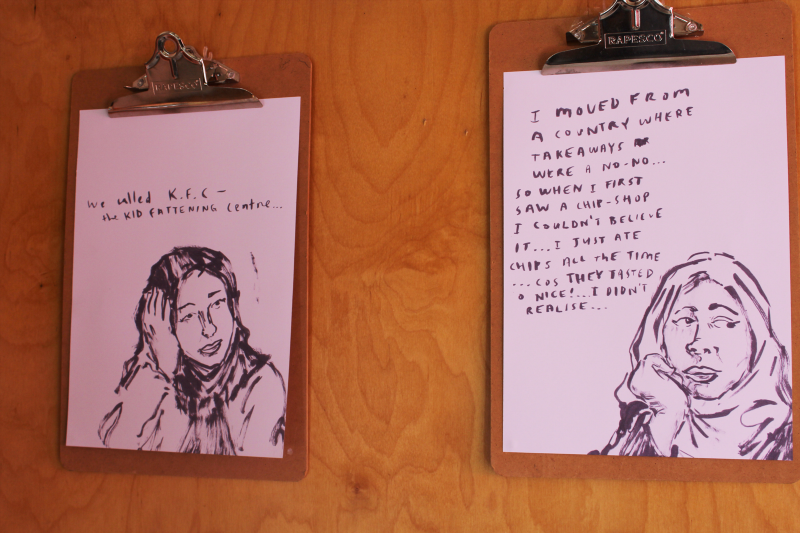 RAPESCO
We called K.F.C –
the KID FATTENING Centre...
RAPESCO
I MOVED FROM
A COUNTRY WHERE
TAKEAWAYS
WERE A NO-NO...
SO WHEN I FIRST
SAW A CHIP-SHOP
I COULDN'T BELIEVE
IT... I JUST ATE
CHIPS ALL the TIME
... COS THEY TASTED
O NICE!... I DIDN'T
REALISE...